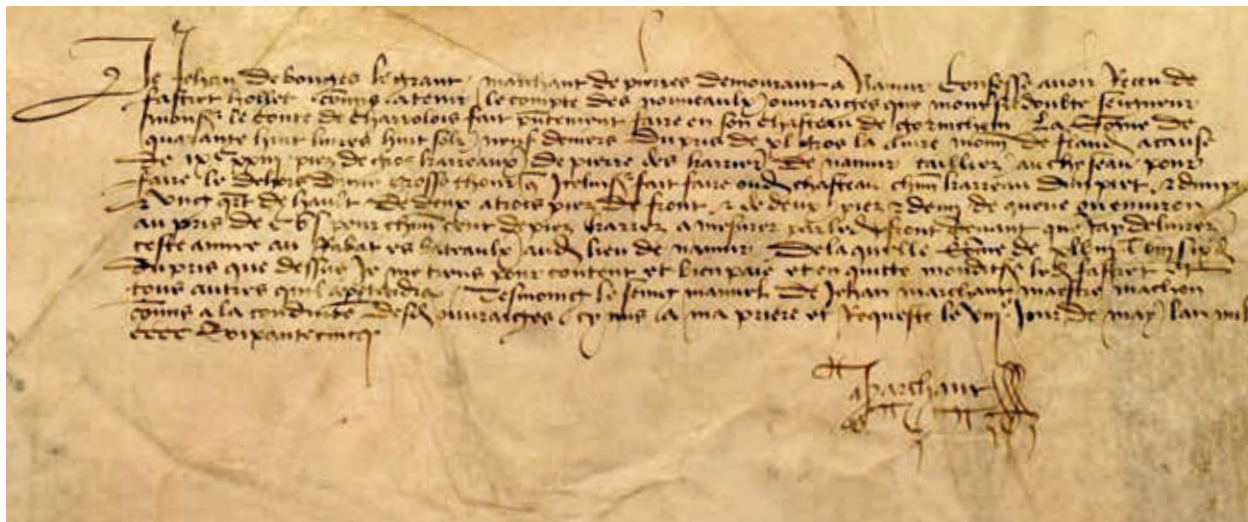 Je Jehan de bouges le grant marchant de pierres demourant a Namur Confesse avoir Receu de
fastret hollet comis a tenir le compte des nouveaulx ouvraiges que monsr redoubte seigneur
monsr le Conte de Charrolois fait pntement faire en son chasteau de gorinchem La Some de
quarante huit livres huit solz neuf deniers du pris de xl gros la livre monn de fland a cause
De de gros karreaux de pierre des karrier de namur taillier au cheseau pour
faire le dehors dune grosse thour q Icelui sr fait faire oud chasteau chm karreau dun piet
vng qrt de hault de deux a trois piez de front de deux piez demi de queue ou environ
au pris de pour chm cent de piez karrez a mesurer par led front devant que Jay delivrez
ceste annee au Rabat es bateaulx aud lieu de namur De laquelle Some de
du pris que dessus Je me tiens pour content et bien paie et en quitte mondit sr led fastret et
tous autres quil appertendra Tesmoing le seing manuel de Jehan marchant maistre machon
comis a la conduite desd ouvraiges cy mis a ma priere et Requeste le viije Jour de may lan mil
cccc Soixante cincq
Marchant